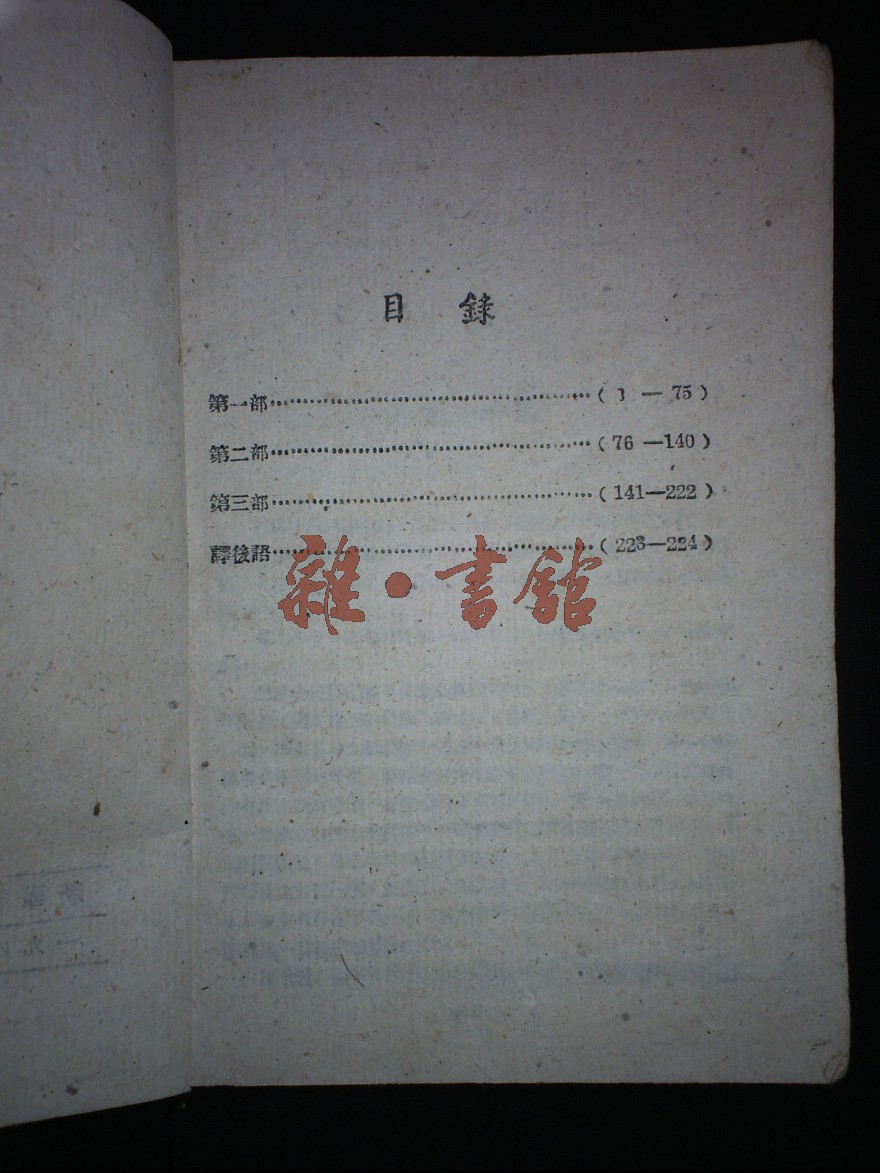 目錄
第一部……………………………………(1—75)
第二部……………………………………(76—140)
第三部……………………………………(141—222)
譯後語……………………………………(223—224)
雜·書館